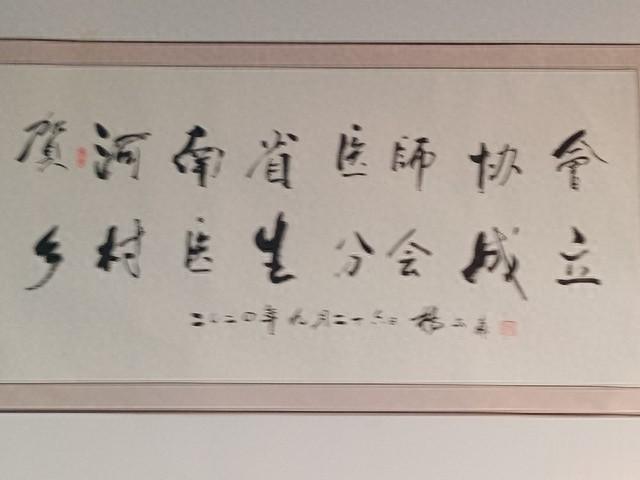 贺河南省医師协會
乡村医生分会成立
二〇二〇年九月二十六日 杨